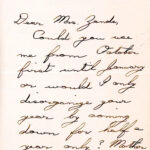 Dear Mrs. Zande,
Could you use
me from October
first until January
or would I only
disorganize your
year by coming
down for half a
year only? Mother